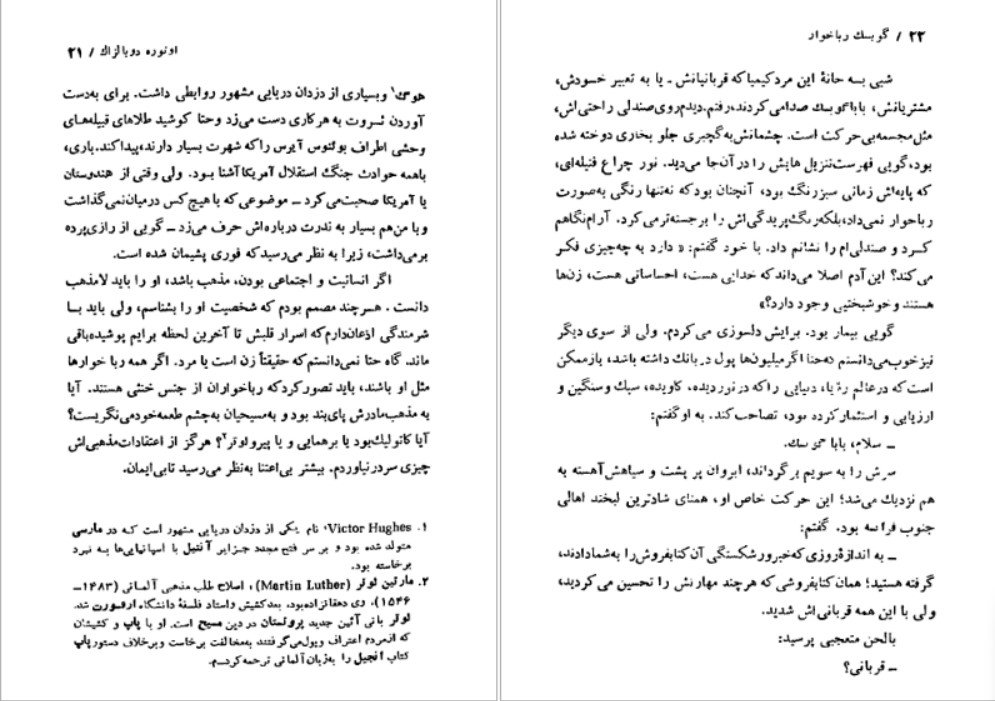 اونوره دوبالزاك / ۲۱
هوگ۱ وبسیاری از دزدان دریایی مشهور روابطی داشت. برای به‌دست
آوردن ثروت به هرکاری دست می‌زد وحتا کوشید طلاهای قبیله‌های
وحشی اطراف بوئنوس آیرس راکه شهرت بسیار دارند،پیداکند.باری،
باهمه حوادث جنگ استقلال آمریکاآشنا بود. ولی وقتی از هندوستان
یا آمریکا صحبت‌می‌کرد ــ موضوعی که با هیچ کس درمیان‌نمی‌گذاشت
وبا من‌هم بسیار به ندرت درباره‌اش حرف می‌زد ــ گویی از رازی‌پرده
برمی‌داشت، زیرا به نظر می‌رسیدکه فوری پشیمان شده است.
اگر انسانیت و اجتماعی بودن، مذهب باشد، او را باید لامذهب
دانست . هرچند مصمم بودم که شخصیت او را بشناسم، ولی باید بــا
شرمندگی اذعان‌دارم‌که اسرار قلبش تا آخرین لحظه برایم پوشیده‌باقی
ماند. گاه حتا نمی‌دانستم‌که حقیقتاً زن است یا مرد. اگر همه ربا خوارها
مثل او باشند، باید تصورکردکه رباخواران از جنس خنثی هستند. آیا
به مذهب‌مادرش پای‌بند بود و به‌مسیحیان به‌چشم طعمه‌خودمی‌نگریست؟
آیاکاتولیك‌بود یا برهمایی و یا پیرولوتر۲؟ هرگز از اعتقادات‌مذهبی‌اش
چیزی سردرنیاوردم. بیشتر بی‌اعتنا به‌نظر می‌رسید تابی‌ایمان.
۱. Victor Hughes، نام یکی از دزدان دریایی مشهور است کــه در مارسی
متولد شده بود و بر سر فتح مجدد جزایر آنتیل با اسپانیایی‌ها بــه نبرد
برخاسته بود.
۲. مارتین لوتر (Martin Luther) ، اصلاح طلب مذهبی آلمانی (۱۴۸۳ــ
۱۵۴۶). وی دهقانزاده‌بود، بعدکشیش واستاد فلسفهٔ دانشگاه ارفورت شد.
لوتر بانی آئین جدید پروتستان در دین مسیح است. او با پاپ و کشیشان
که ازمردم اعتراف وپول‌می‌گرفتند به‌مخالفت برخاست وبرخلاف دستورپاپ
کتاب انجیل را به‌زبان‌آلمانی ترجمه‌کرد.
۲۲ / گوبسك رباخوار
شبی بــه خانهٔ این مردکیمیاکه قربانیانش ــ یا به تعبیر خــودش،
مشتریانش، باباگوبسك صدامی‌کردند،رفتم.دیدم‌روی‌صندلی‌راحتی‌اش،
مثل‌مجسمه‌بی‌حرکت است. چشمانش‌به‌گچبری جلو بخاری دوخته شده
بود،گویی فهرست‌تنزیل هایش را درآن‌جا می‌دید. نور چراغ فتیله‌ای،
که پایه‌اش زمانی سبزرنگ بود، آنچنان بودکه نه‌تنها رنگی به‌صورت
رباخوار نمی‌داد،بلکه‌رنگ‌پریدگی‌اش را برجسته‌ترمی‌کرد. آرام‌نگاهم
کــرد و صندلی‌ام را نشانم داد. با خود گفتم: «دارد به چه‌چیزی فکــر
می‌کند؟ این‌آدم اصلا می‌داندکه خدایی هست، احساساتی هست، زن‌ها
هستند وخوشبختیی وجود دارد؟»
گویی بیمار بود. برایش دلسوزی می‌کردم. ولی از سوی دیگر
نیزخوب‌می‌دانستم که‌حتا اگرمیلیون‌ها پول دربانك داشته باشد، بازممکن
است‌که درعالم رؤیا، دنیایی راکه درنوردیده، کاویده، سبك وسنگین و
ارزیابی و استثمارکرده بود، تصاحب‌کند. به اوگفتم:
ــ سلام، بابا گوبسك.
سرش را به سویم برگرداند، ابروان پر پشت و سیاهش‌آهسته به
هم نزدیك می‌شد؛ این حرکت خاص او، همتای شادترین لبخند اهالی
جنوب فرانسه بود. گفتم:
ــ به اندازهٔ‌روزی‌که‌خبرورشکستگی آن‌کتابفروش‌را به‌شمادادند،
گرفته هستید؛ همان‌کتابفروشی که هرچند مهارتش را تحسین می‌کردید،
ولی با این همه قربانی‌اش شدید.
بالحن متعجبی پرسید:
ــ قربانی؟